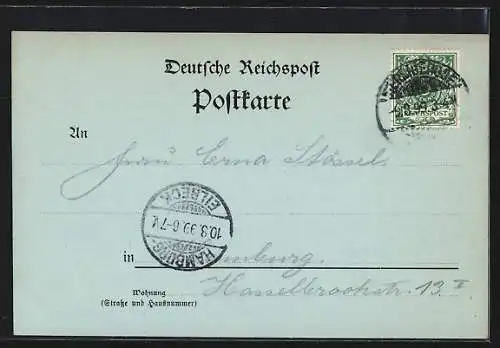 Deutsche Reichspost
Postkarte
An
Frau Erna Stössel
in Hamburg.
Hasselbrookstr. 13 I
Wohnung
(Straße und Hausnummer)
HAMBURG
10.3.99. 6-7 N
EILBECK
REICHSPOST